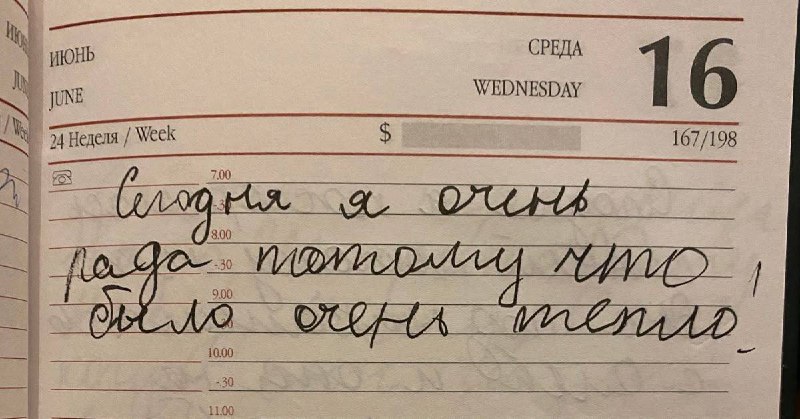 ИЮНЬ СРЕДА 16
JUNE WEDNESDAY
24 Неделя / Week $ 167/198
7.00
Сегодня я очень
8.00
рада потому что
-30
9.00
было очень тепло!
10.00
-30
11.00